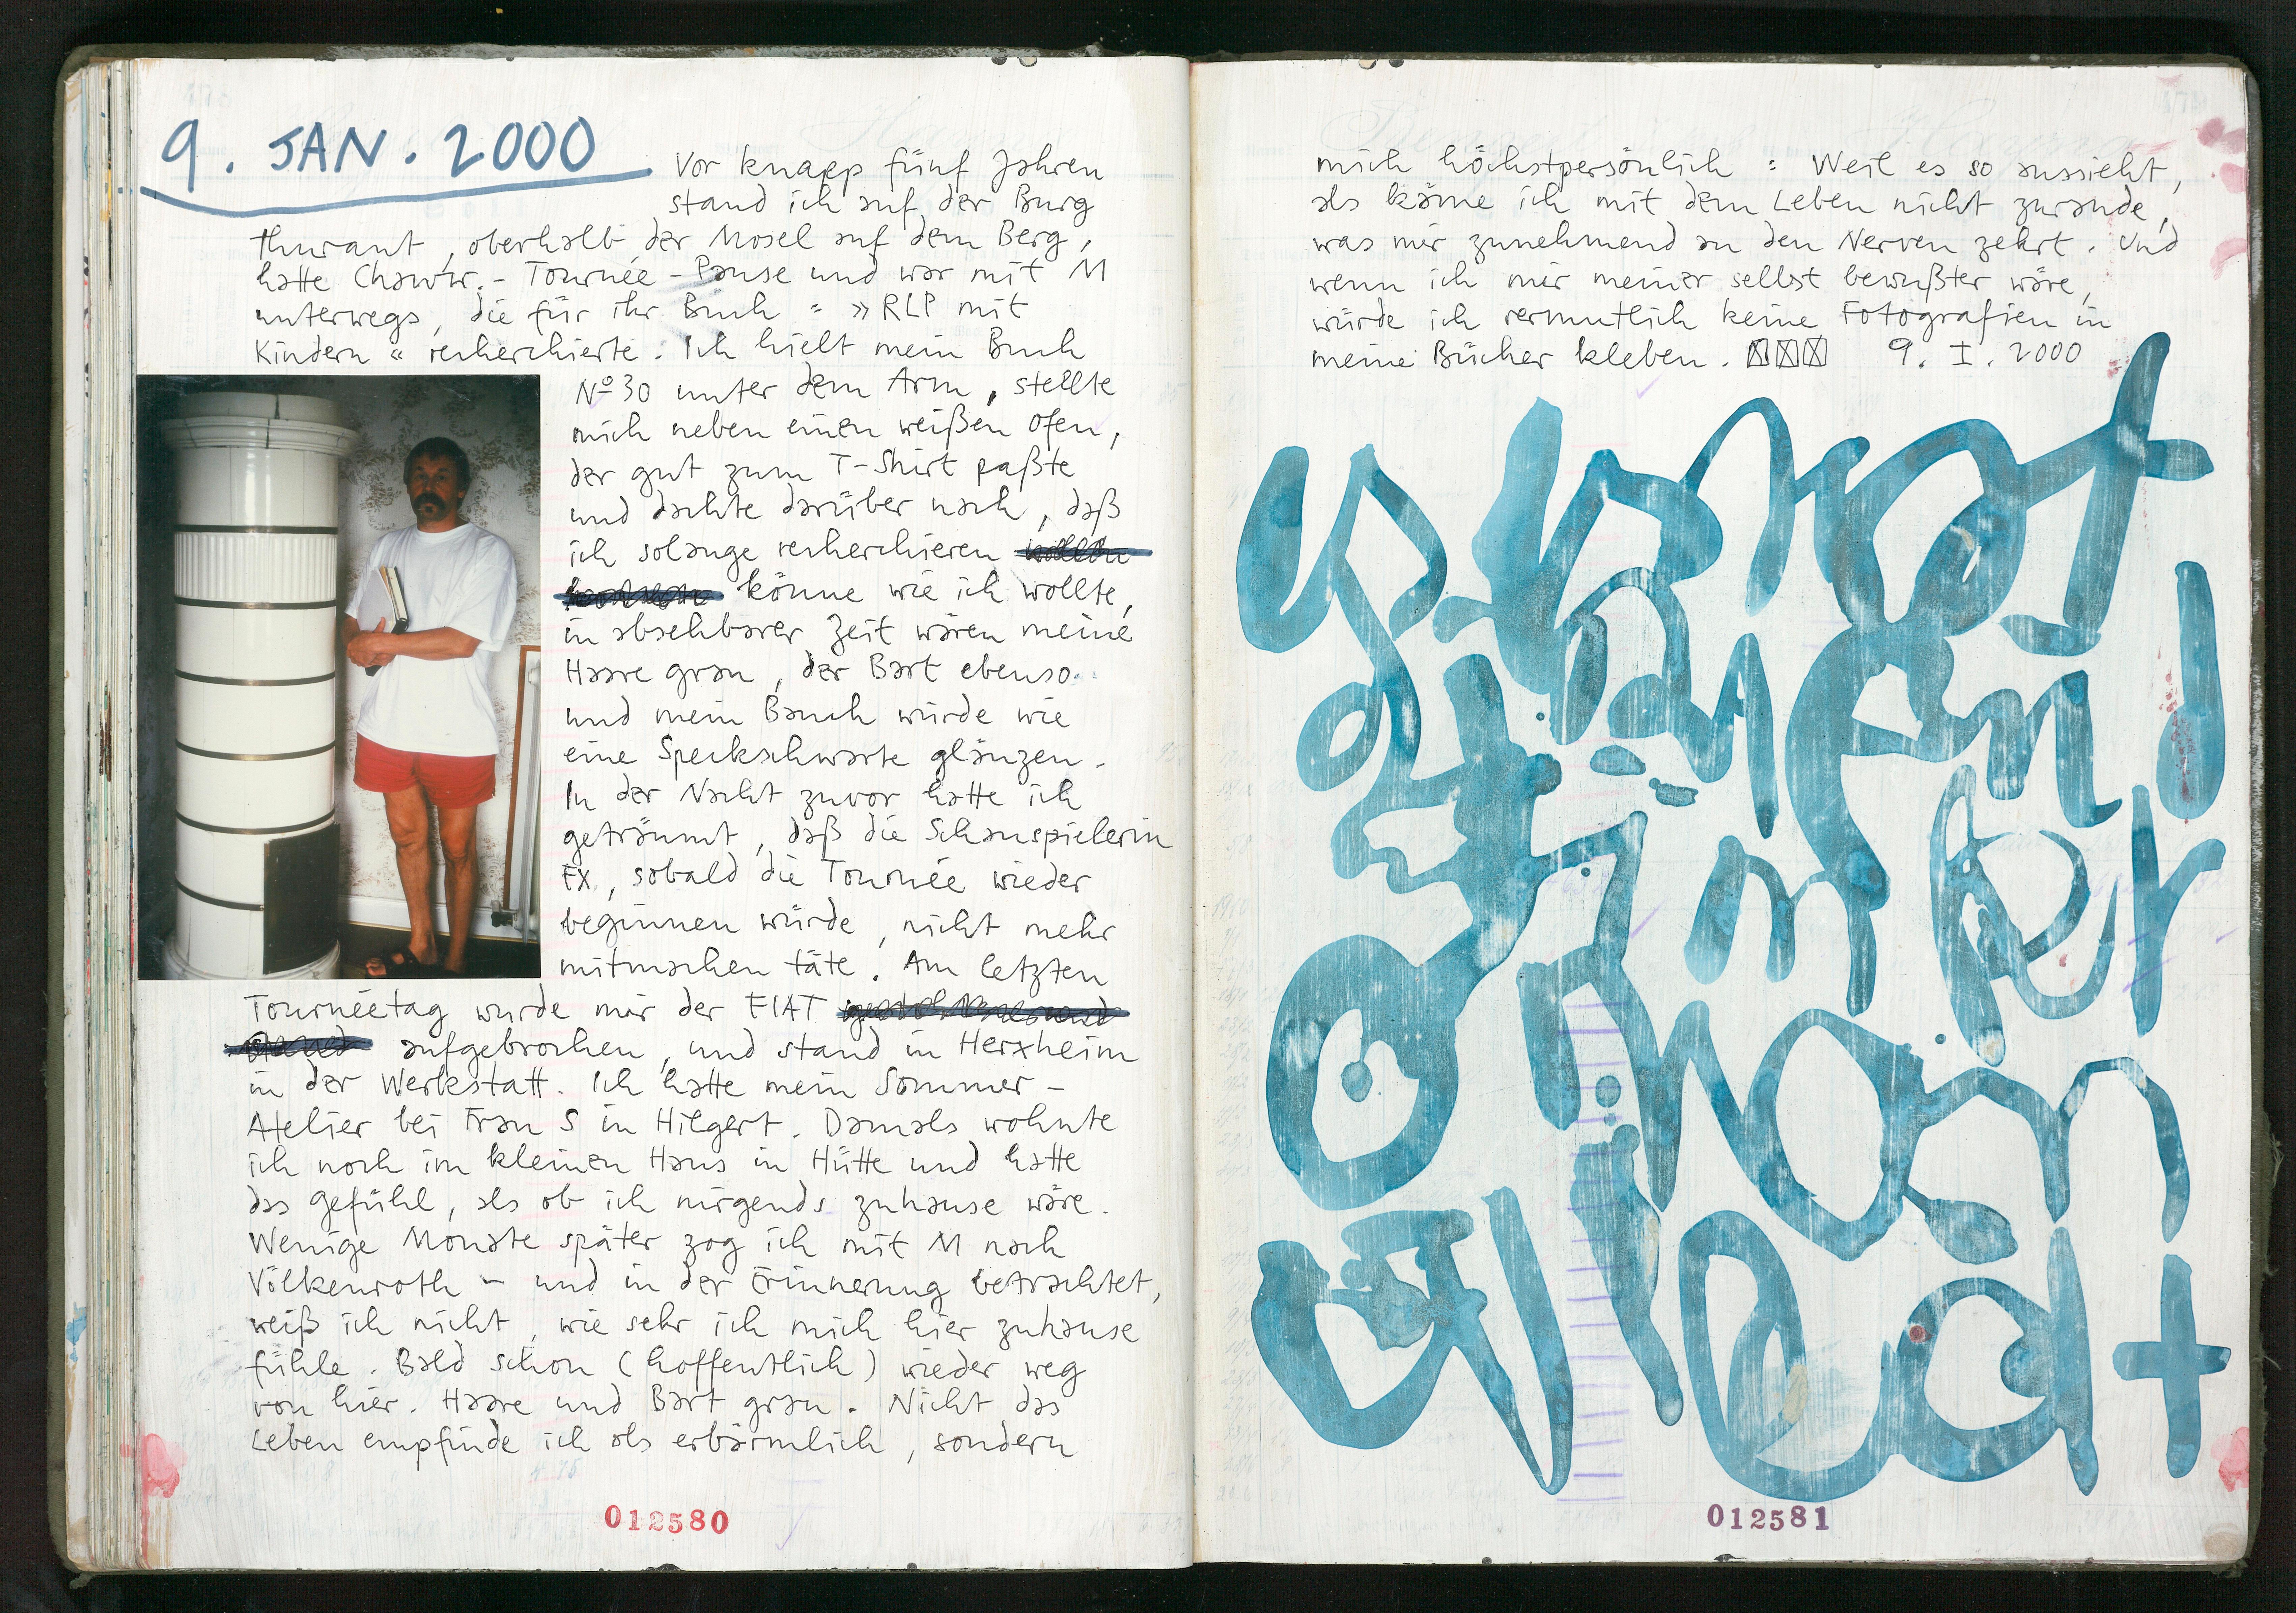 9. JAN. 2000
Vor knapp fünf Jahren
stand ich auf der Burg
Thurant, oberhalb der Mosel auf dem Berg,
hatte Chawwr.-Tournée-Pause und war mit M
unterwegs, die für ihr Buch = »RLP mit
Kindern« recherchierte. Ich hielt mein Buch
Nº 30 unter dem Arm, stellte
mich neben einen weißen Ofen,
der gut zum T-Shirt paßte
und dachte darüber nach, daß
ich solange recherchieren
könne wie ich wollte,
in absehbarer Zeit wären meine
Haare grau, der Bart ebenso
und mein Bauch würde wie
eine Speckschwarte glänzen.
In der Nacht zuvor hatte ich
geträumt, daß die Schauspielerin
EX, sobald die Tournée wieder
beginnen würde, nicht mehr
mitmachen täte. Am letzten
Tournéetag wurde mir der FIAT
aufgebrochen, und stand in Herxheim
in der Werkstatt. Ich hatte mein Sommer-
Atelier bei Frau S in Hilgert. Damals wohnte
ich noch im kleinen Haus in Hütte und hatte
das Gefühl, als ob ich nirgends zuhause wäre.
Wenige Monate später zog ich mit M nach
Völkenroth - und in der Erinnerung betrachtet,
weiß ich nicht, wie sehr ich mich hier zuhause
fühle. Bald schon (hoffentlich) wieder weg
von hier. Haare und Bart grau. Nicht das
Leben empfinde ich als erbärmlich, sondern
012580
mich höchstpersönlich: Weil es so aussieht,
als käme ich mit dem Leben nicht zurande,
was mir zunehmend an den Nerven zehrt. Und
wenn ich mir meiner selbst bewußter wäre,
würde ich vermutlich keine Fotografien in
meine Bücher kleben. 9. I. 2000
012581